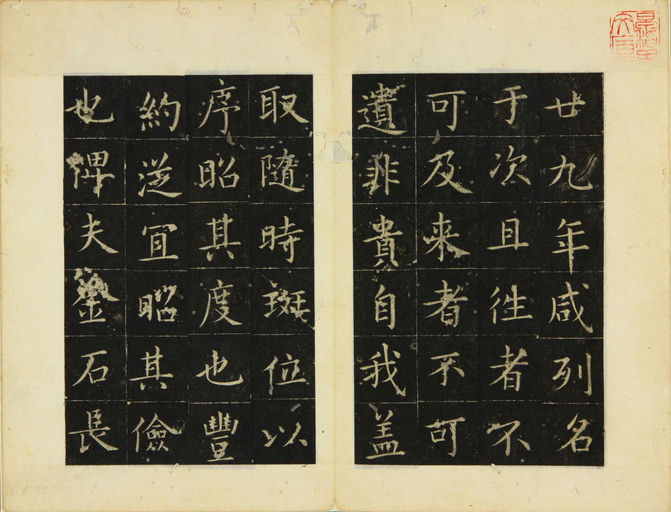 廿九年咸列名
于次且徃者不
可及来者不可
遺非貴自我盖
取隨時班位以
序昭其度也豐
約從冝昭其儉
也俾夫金石長